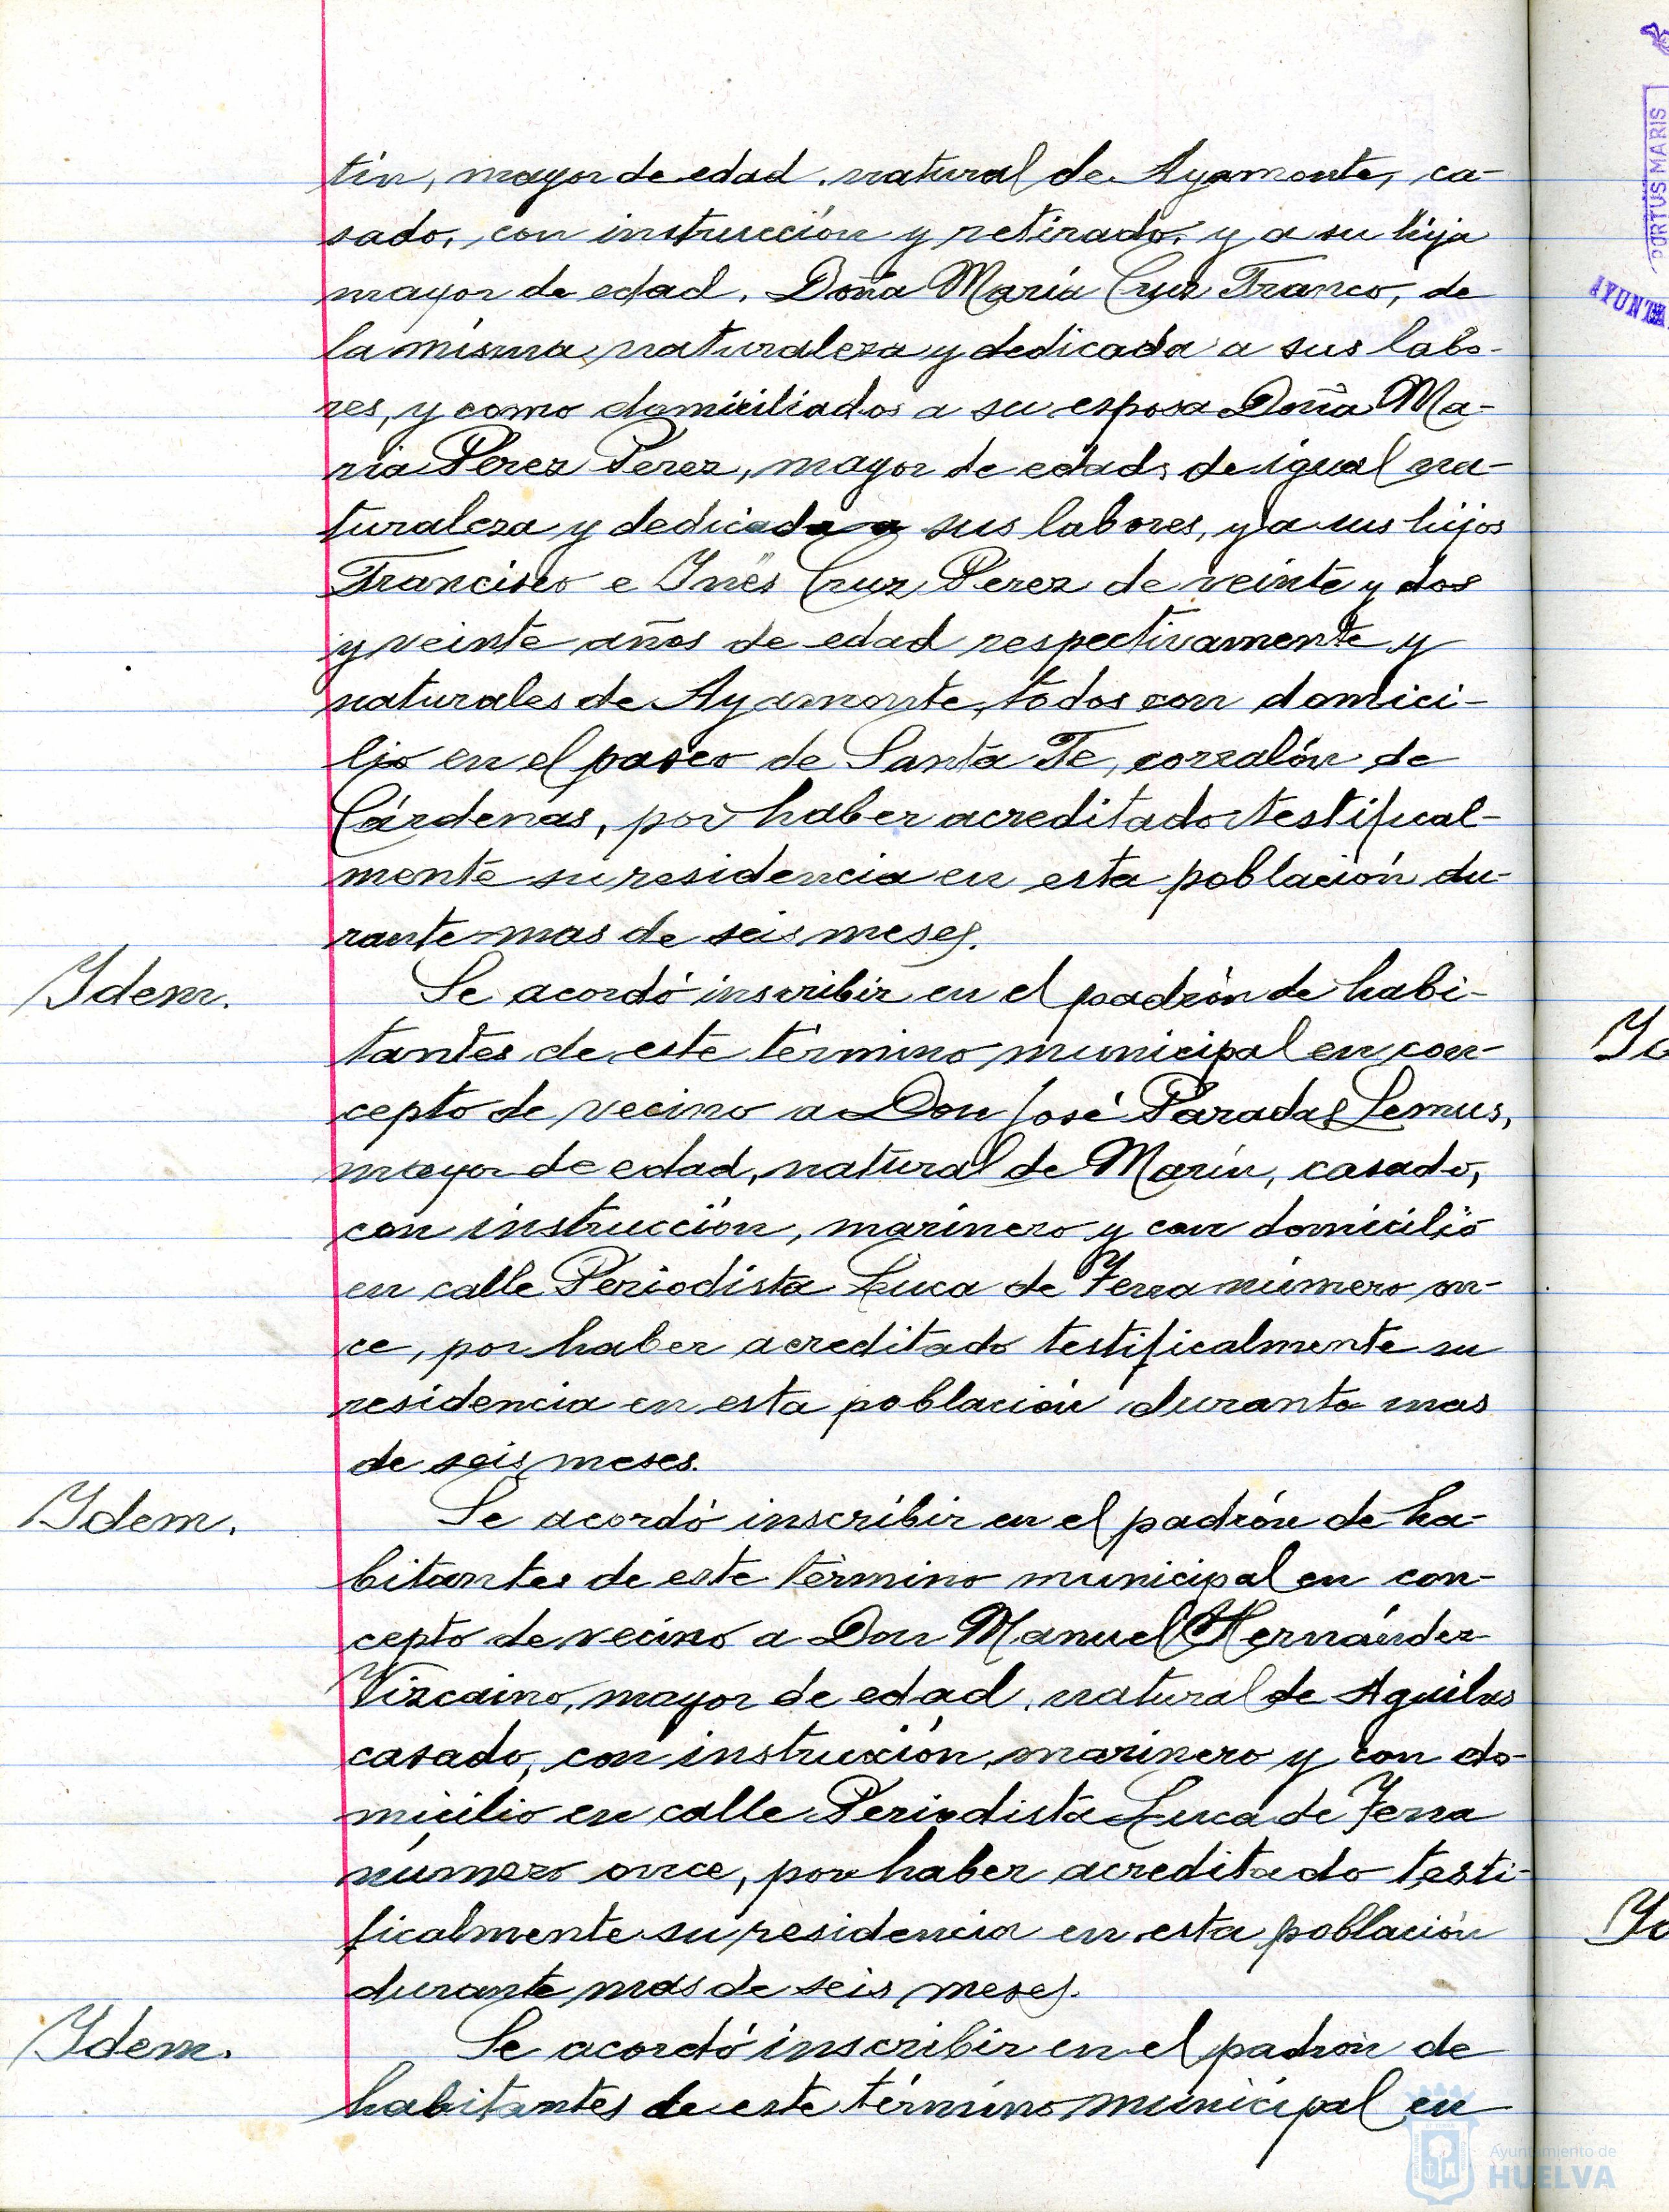 tín, mayor de edad, natural de Ayamonte, ca-
sado, con instrucción y retirado, y a su hija
mayor de edad, Doña María Cruz Franco, de
la misma naturaleza y dedicada a sus labo-
res, y como domiciliados a su esposa Doña Ma-
ria Perez Perez, mayor de edad, de igual na-
turaleza y dedicada a sus labores, y a sus hijos
Francisco e Inés Cruz Perez de veinte y dos
y veinte años de edad respectivamente y
naturales de Ayamonte, todos con domici-
lio en el paseo de Santa Fe, corralón de
Cárdenas, por haber acreditado testifical-
mente su residencia en esta población du-
rante mas de seis meses.
Idem. Se acordó inscribir en el padrón de habi-
tantes de este término municipal en con-
cepto de vecino a Don José Paradas Lemus,
mayor de edad, natural de Marín, casado,
con instrucción, marinero y con domicilio
en calle Periodista Luca de Tena número on-
ce, por haber acreditado testificalmente su
residencia en esta población durante mas
de seis meses.
Idem. Se acordó inscribir en el padrón de ha-
bitantes de este término municipal en con-
cepto de vecino a Don Manuel Hernández
Vizcaino, mayor de edad, natural de Aguilas
casado, con instrucción, marinero y con do-
micilio en calle Periodista Luca de Tena
número once, por haber acreditado testi-
ficalmente su residencia en esta población
durante mas de seis meses.
Idem. Se acordó inscribir en el padrón de
habitantes de este término municipal en
PORTUS MARIS
AYUNTA
Ayuntamiento de
HUELVA